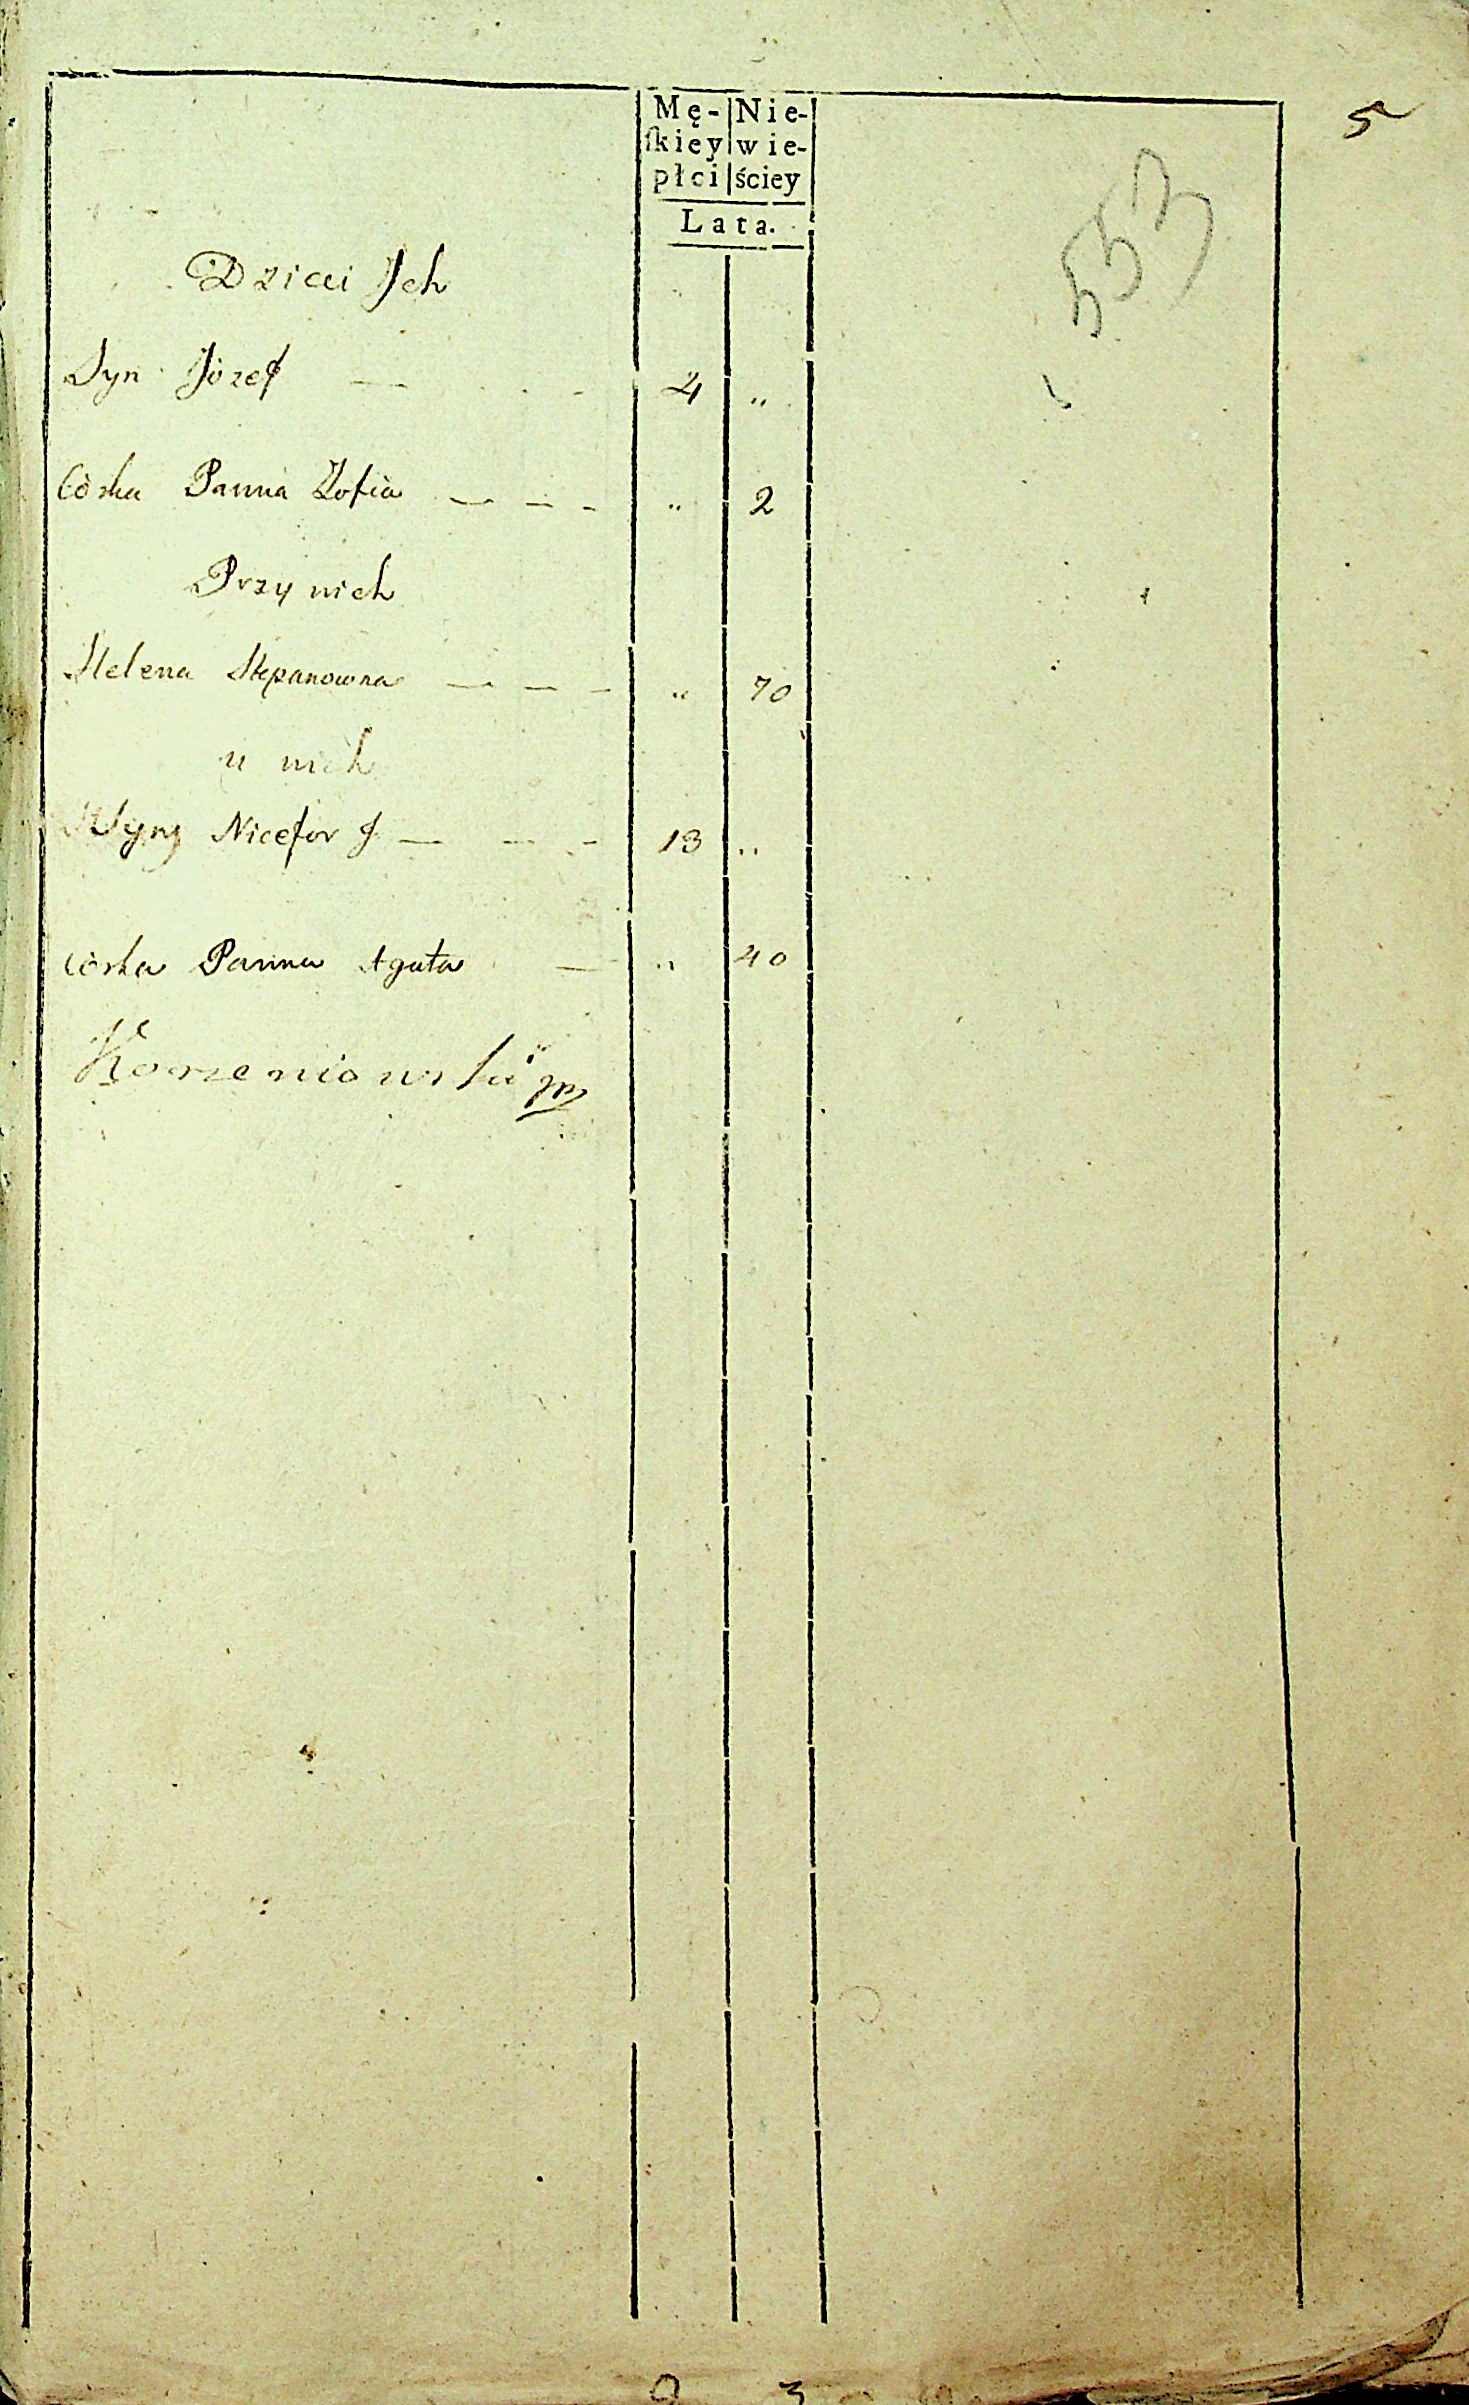 5
553
Mę- Nie-
ſkiey wie-
płci ściey
Lata.
Dzieci Ich
Syn Józef — 4 "
Córka Panna Zofia — — - " 2
Przy nich
Helena Stepanowna — — - " 70
u nich
Nicefor — — - 13 "
Córka Panna Agata — " 40
Korzeniowski